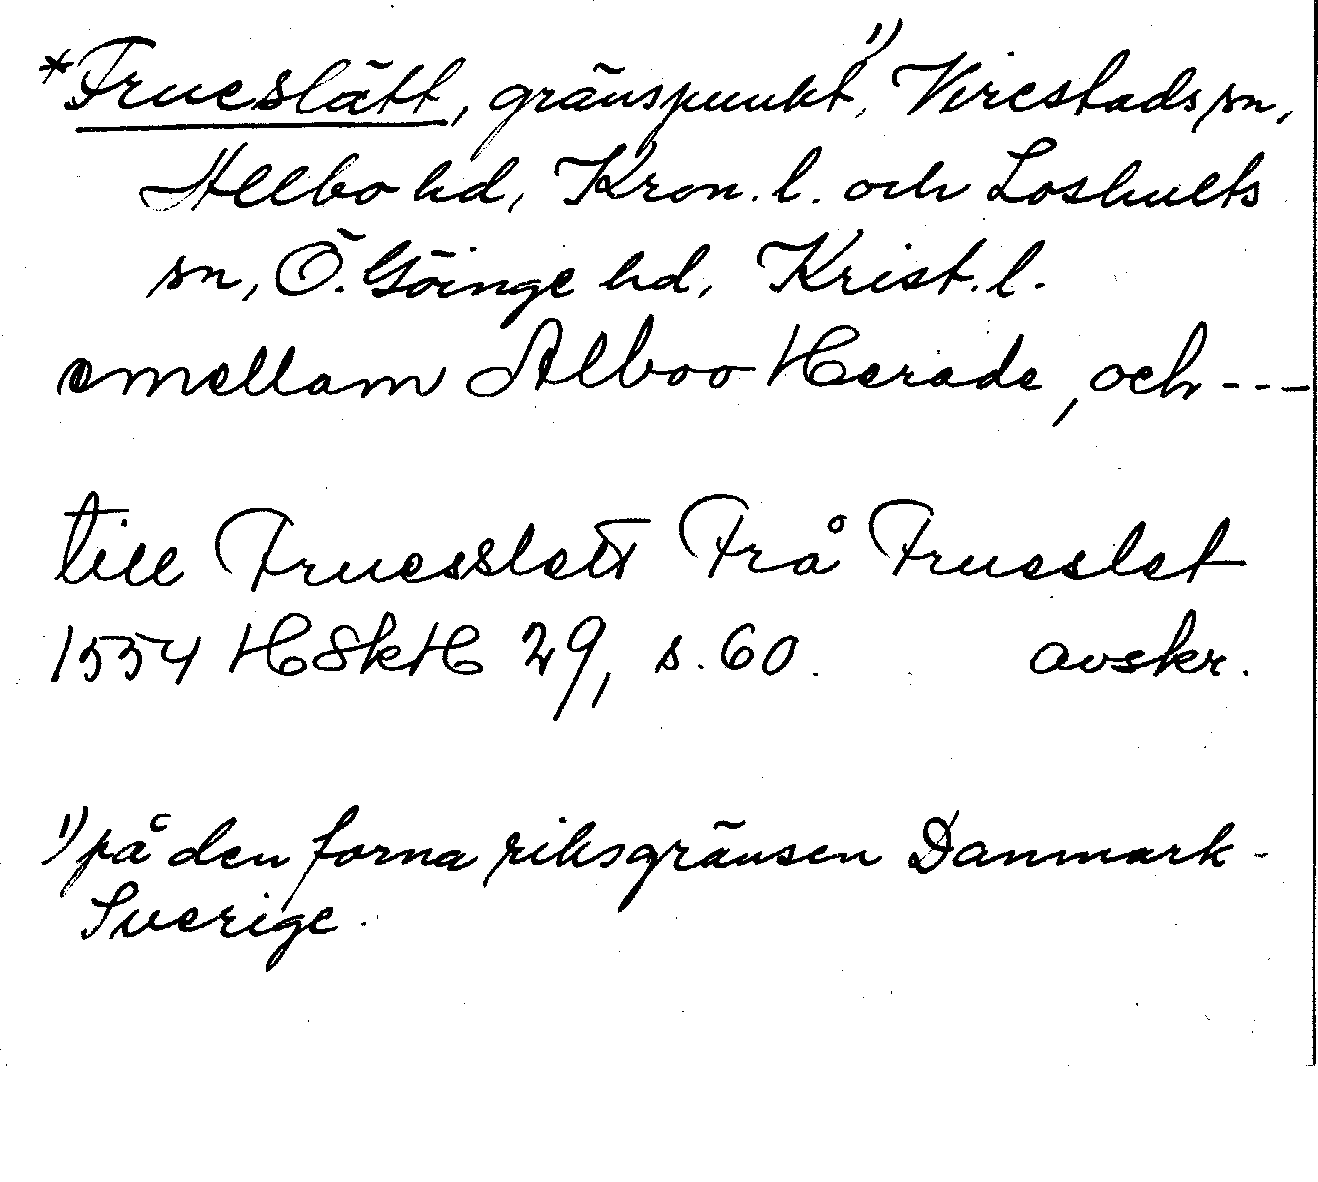 *Frueslätt, gränspunkt¹⁾, Virestads sn,
Allbo hd, Kron. l. och Loshults
sn, Ö. Göinge hd, Krist. l.
emellam Alboo Herade, och ---
till Fruesslett Frå Frueslet
1554 HSkH 29, s. 60. avskr.
¹⁾ på den forna riksgränsen Danmark -
Sverige.